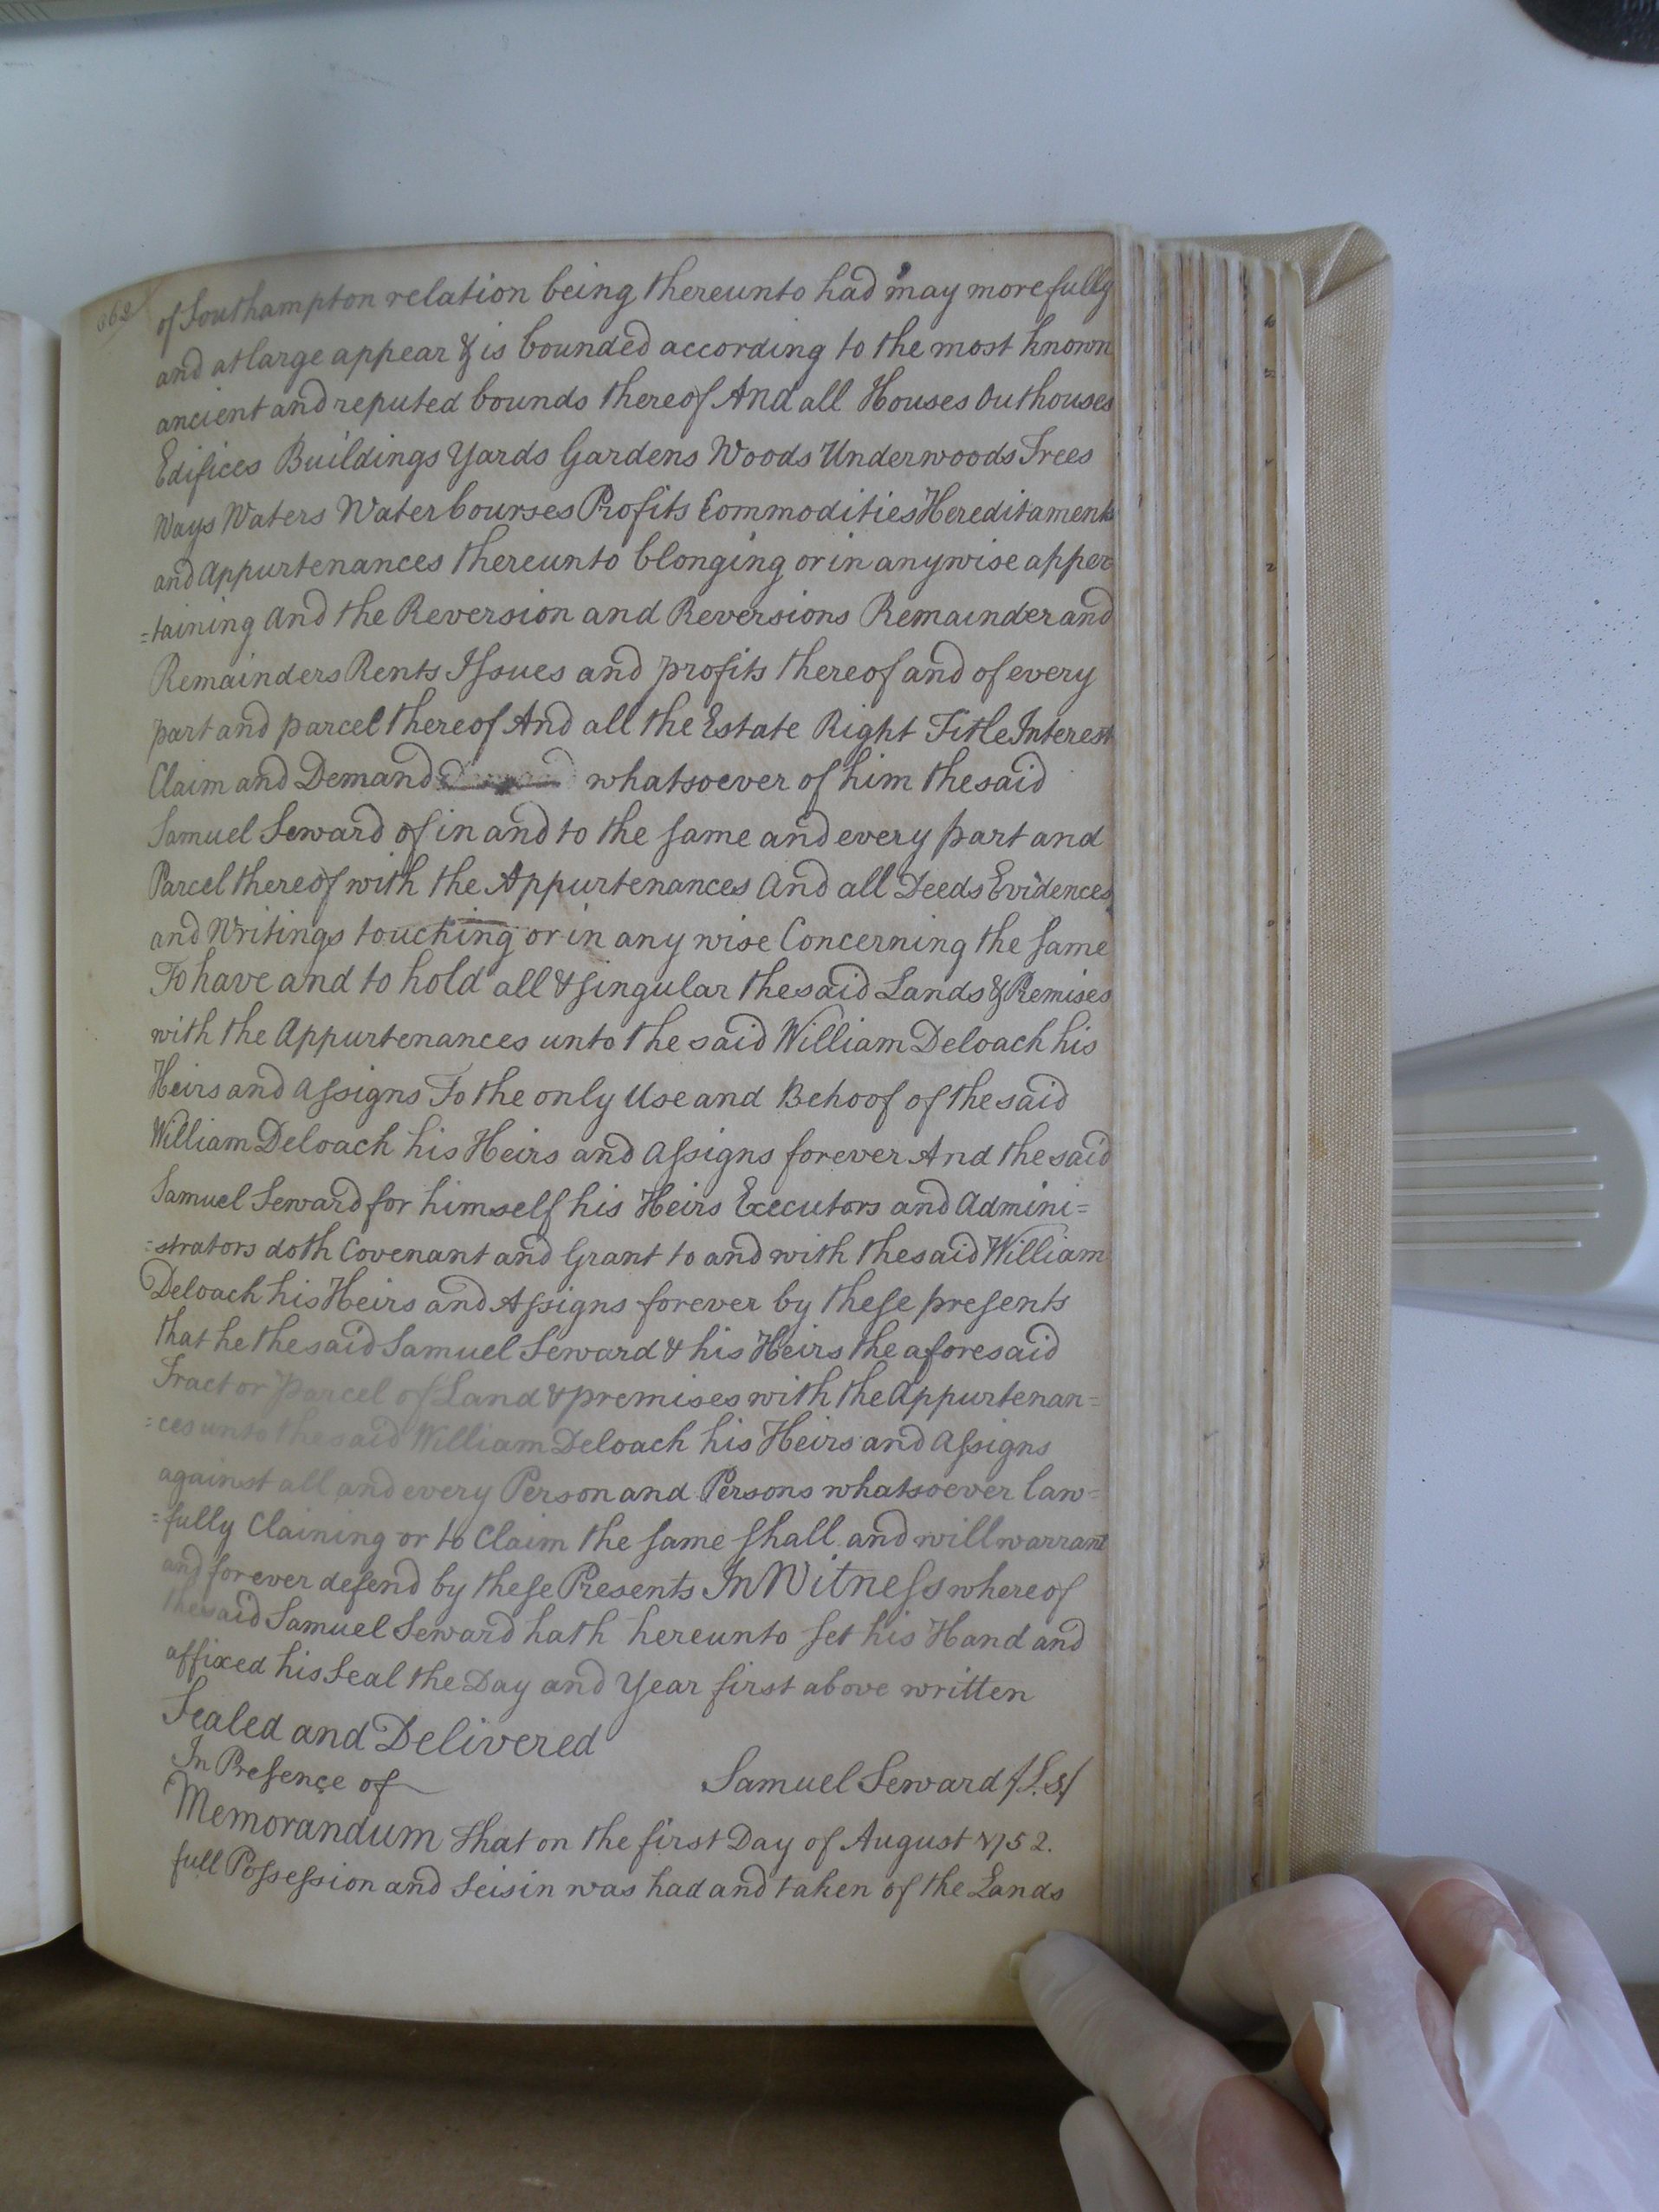 362
of Southampton relation being thereunto had may more fully
and at large appear & is bounded according to the most known
ancient and reputed bounds thereof And all Houses Outhouses
Edifices Buildings Yards Gardens Woods Underwoods Trees
Ways Waters Waterbourses Profits Commodities Hereditaments
and Appurtenances thereunto blonging or in anywise apper
=taining And the Reversion and Reversions Remainder and
Remainders Rents Issues and profits thereof and of every
part and parcel thereof And all the Estate Right Title Interest
Claim and Demand whatsoever of him the said
Samuel Seward of in and to the same and every part and
Parcel thereof with the Appurtenances And all Deeds Evidences
and Writings touching or in any wise Concerning the same
To have and to hold all & singular the said Lands & Premises
with the Appurtenances unto the said William Deloach his
Heirs and Assigns To the only Use and Behoof of the said
William Deloach his Heirs and Assigns forever And the said
Samuel Seward for himself his Heirs Executors and Admini=
=strators doth Covenant and Grant to and with the said William
Deloach his Heirs and Assigns forever by these presents
that he the said Samuel Seward & his Heirs the aforesaid
Tract or Parcel of Land & premises with the Appurtenan=
=ces unto the said William Deloach his Heirs and Assigns
against all and every Person and Persons whatsoever law=
=fully Claining or to Claim the same shall and will warrant
and forever defend by these Presents In Witness whereof
the said Samuel Seward hath hereunto set his Hand and
affixed his Seal the Day and Year first above written
Sealed and Delivered
In Presence of
Samuel Seward /L.S/
Memorandum that on the first Day of August 1752.
full Possession and Seisin was had and taken of the Lands